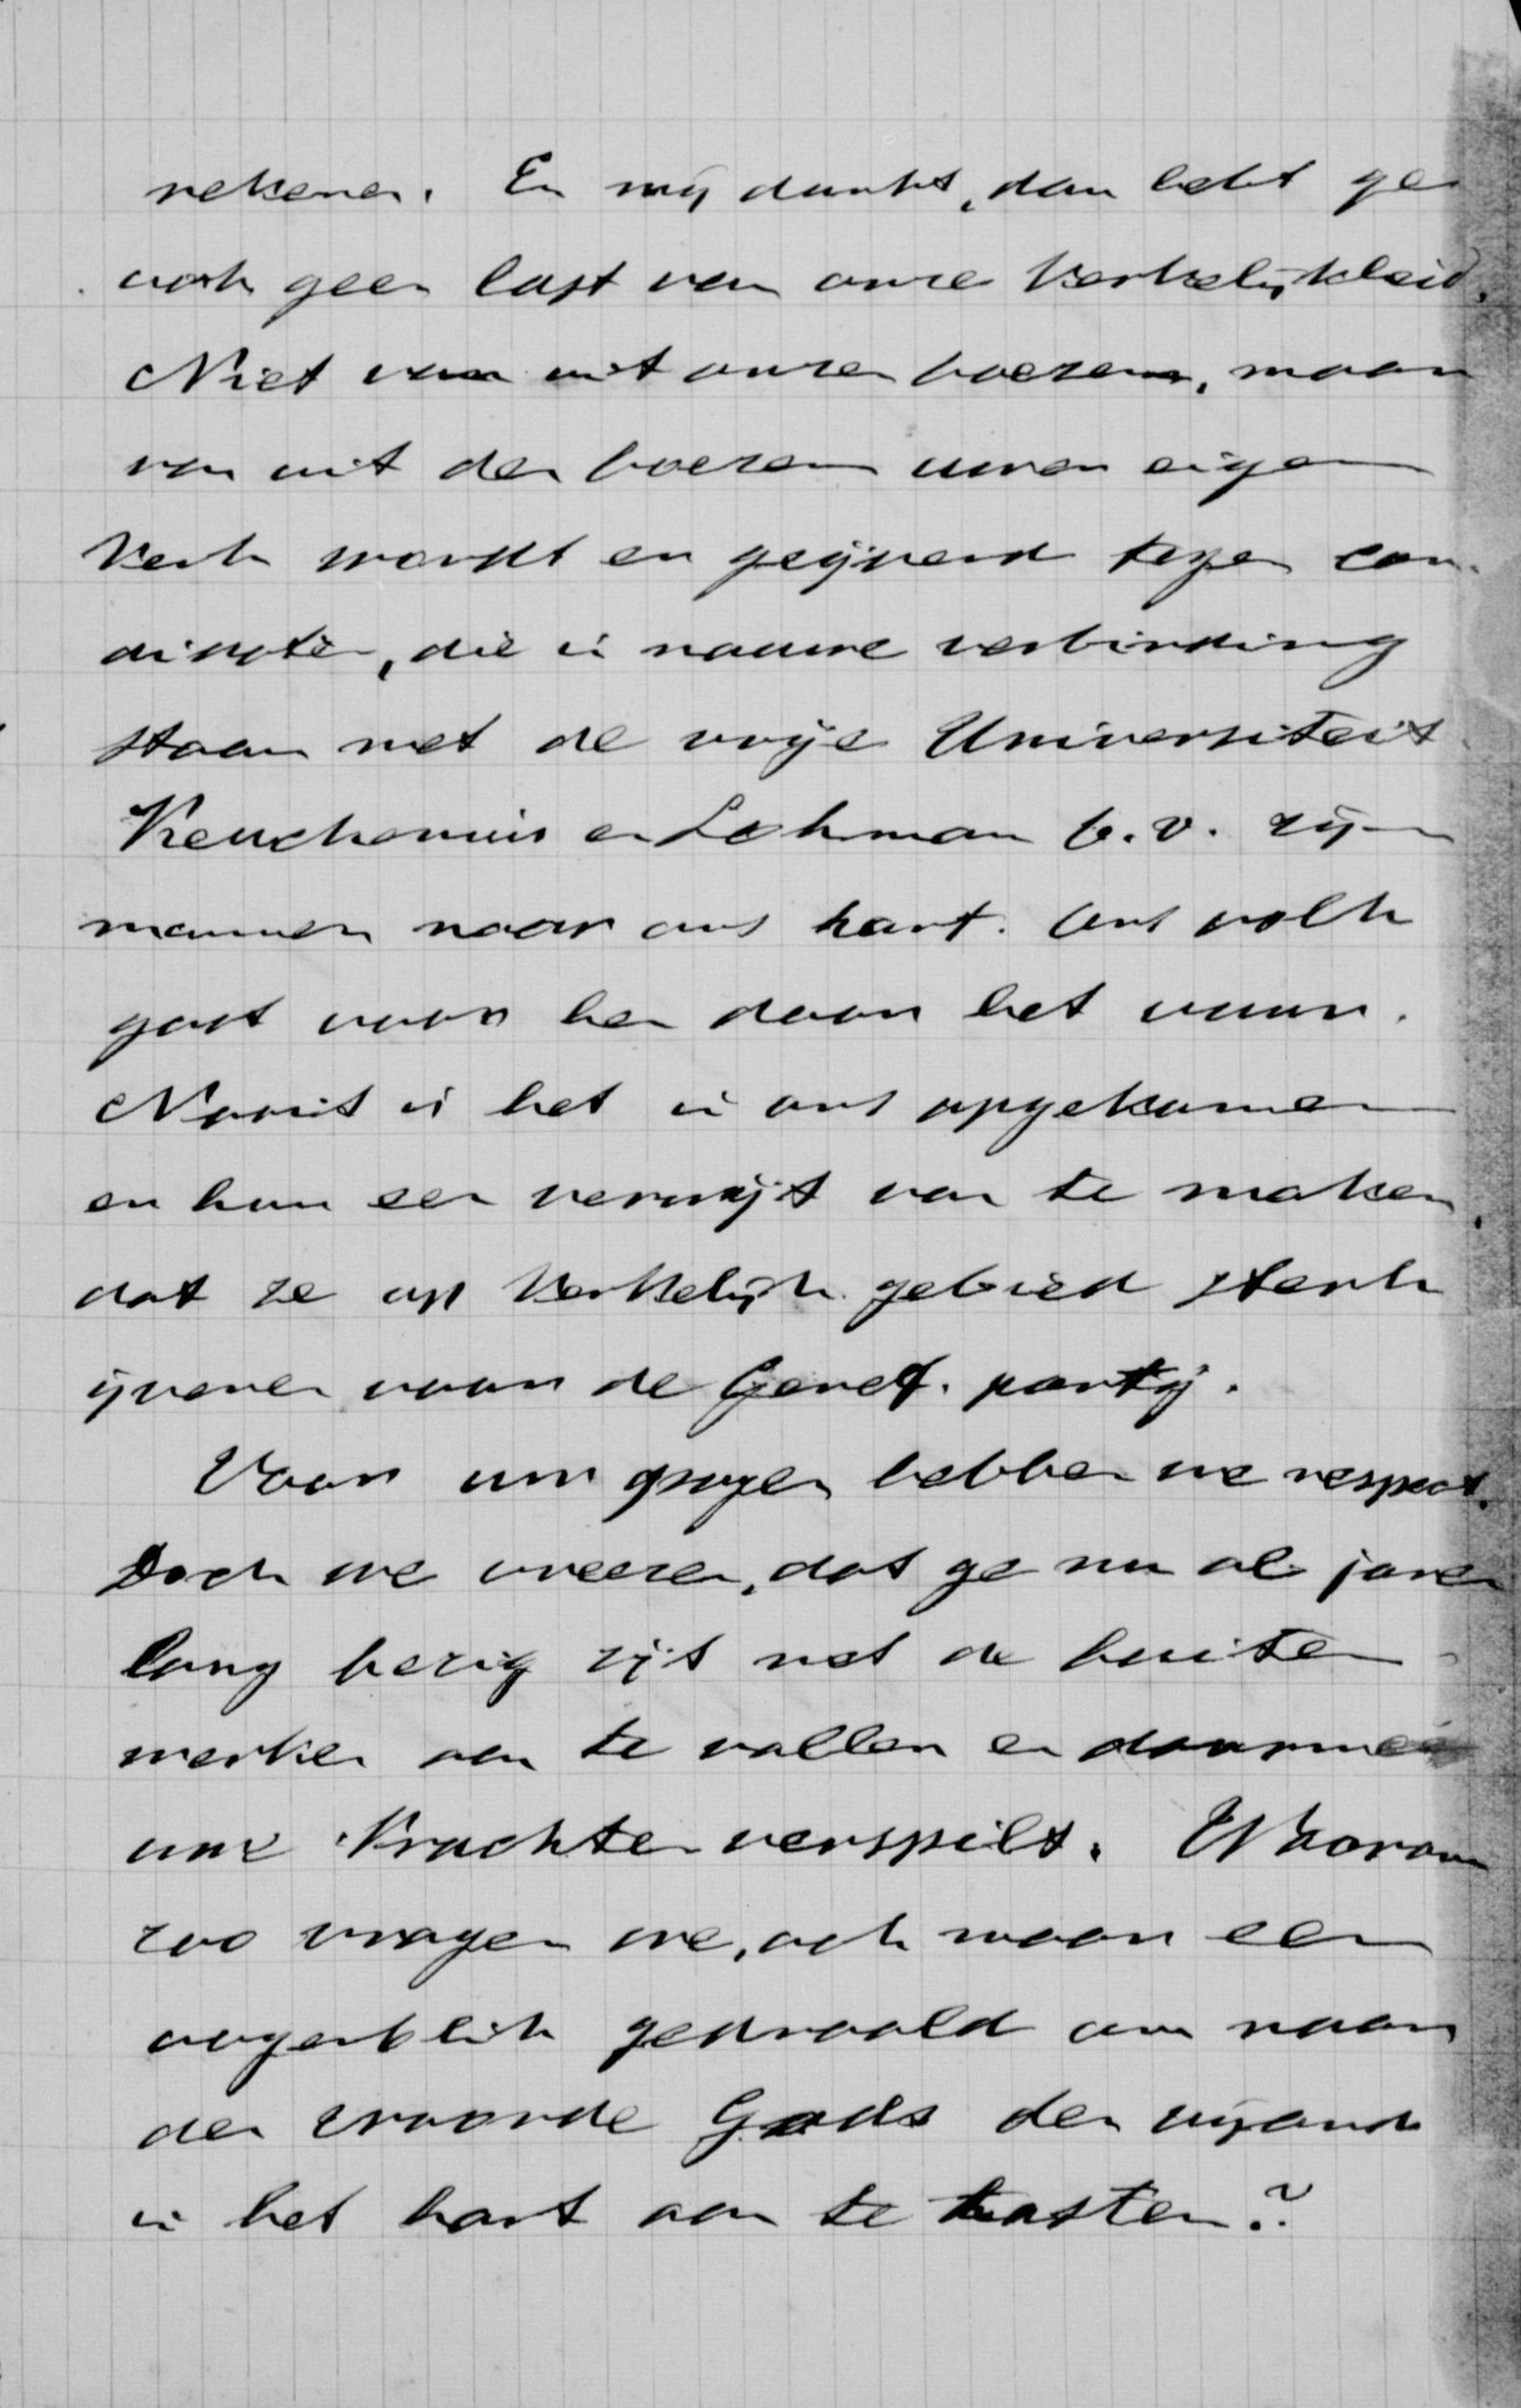 rekenen. En mij dunkt, dan hebt ge
ook geen last van onze kerkelijkheid.
Niet van uit onzen boezem, maar
van uit den boezem uwer eigen
kerk wordt er geijverd tegen can-
didaten, die in nauwe verbinding
staan met de vrije Universiteit
Keuchenius en Lohman b.v. zijn
mannen naar ons hart. Ons volk
gaat voor hen door het vuur.
Nooit is het in ons opgekomen
er hun een verwijt van te maken,
dat ze op kerkelijk gebied sterk
ijveren voor de Geref. partij.
Voor uw pogen hebben we respect.
Doch we vreezen, dat ge nu al jaren
lang bezig zijt met de buiten
werken aan te vallen en daarmee
uwe krachten verspilt. Waarom
zoo vragen we, ook maar een
oogenblik gedraald om naar
den woorde Gods den vijand
in het hart aan te tasten?